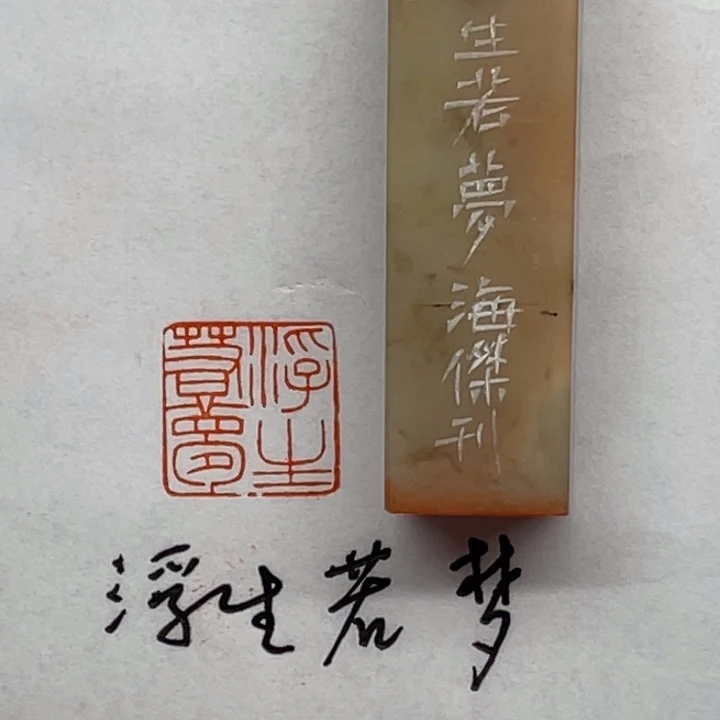 生若夢海傑刊
浮生
若夢
浮生若梦